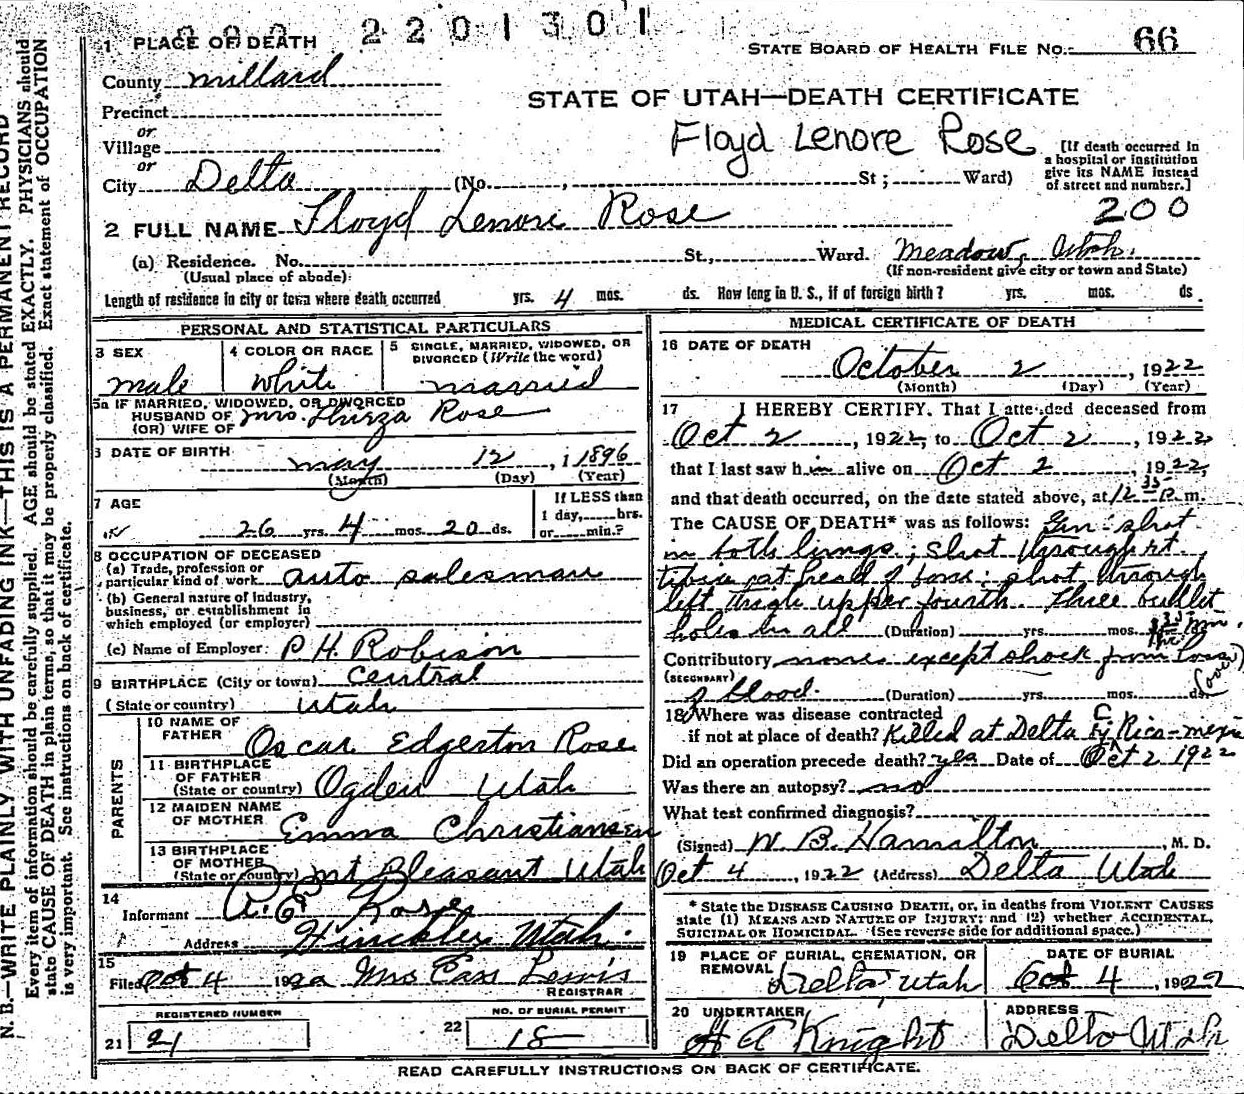 2201301
1 PLACE OF DEATH
STATE BOARD OF HEALTH FILE NO. 66
County Millard
STATE OF UTAH—DEATH CERTIFICATE
Precinct
Floyd Lenore Rose
or
Village
or
City Delta (No. , St; Ward)
[If death occurred in
a hospital or institution
give its NAME instead
of street and number.]
200
2 FULL NAME Floyd Lenore Rose
(a) Residence. No. St., Ward. Meadow, Utah.
(Usual place of abode) (If non-resident give city or town and State)
Length of residence in city or town where death occurred yrs. 4 mos. ds. How long in U. S., if of foreign birth? yrs. mos. ds
PERSONAL AND STATISTICAL PARTICULARS
3 SEX 4 COLOR OR RACE 5 SINGLE, MARRIED, WIDOWED, OR
DIVORCED (Write the word)
male white married
5a IF MARRIED, WIDOWED, OR DIVORCED
HUSBAND OF Mrs. Thirza Rose
(OR) WIFE OF
6 DATE OF BIRTH May 12, 1 1896
(Month) (Day) (Year)
7 AGE If LESS than
1 day, hrs.
26 yrs. 4 mos. 20 ds. or min.?
8 OCCUPATION OF DECEASED
(a) Trade, profession or
particular kind of work auto salesman
(b) General nature of industry,
business, or establishment in
which employed (or employer)
(c) Name of Employer: P.H. Robison
9 BIRTHPLACE (City or town) Central
(State or country) Utah
PARENTS
10 NAME OF
FATHER Oscar Edgerton Rose
11 BIRTHPLACE
OF FATHER
(State or country) Ogden Utah
12 MAIDEN NAME
OF MOTHER Emma Christiansen
13 BIRTHPLACE
OF MOTHER
(State or country) Mt Pleasant Utah
14
Informant Rose
Address Hinckley Utah.
15
Filed Oct 4 1922 Mrs Cass Lewis
REGISTRAR
REGISTERED NUMBER NO. OF BURIAL PERMIT
21 21 22 18
MEDICAL CERTIFICATE OF DEATH
16 DATE OF DEATH
October 2, 1922
(Month) (Day) (Year)
17 I HEREBY CERTIFY. That I attended deceased from
Oct 2, 1922, to Oct 2, 1922,
that I last saw him alive on Oct 2, 1922,
and that death occurred, on the date stated above, at 12 35 P. m.
The CAUSE OF DEATH* was as follows: Gun-shot
in both lungs; shot through rt.
tibia at head of bone; shot through
left thigh upper fourth. Three bullet
holes in all (Duration) yrs. mos.
Contributory none except shock from loss
(SECONDARY) (over)
of blood. (Duration) yrs. mos. ds.
18 Where was disease contracted
if not at place of death? Killed at Delta by C Rico-mexi
Did an operation precede death? yes Date of Oct 2 1922
Was there an autopsy? no
What test confirmed diagnosis?
(Signed) W. B. Hamilton, M. D.
Oct 4, 1922 (Address) Delta Utah
* State the DISEASE CAUSING DEATH, or, in deaths from VIOLENT CAUSES
state (1) MEANS AND NATURE OF INJURY; and (2) whether ACCIDENTAL,
SUICIDAL OR HOMICIDAL. (See reverse side for additional space.)
19 PLACE OF BURIAL, CREMATION, OR DATE OF BURIAL
REMOVAL
Delta, Utah Oct 4, 1922
20 UNDERTAKER ADDRESS
H A Knight Delta Utah
READ CAREFULLY INSTRUCTIONS ON BACK OF CERTIFICATE.
N. B.—WRITE PLAINLY WITH UNFADING INK—THIS IS A PERMANENT RECORD
Every item of information should be carefully supplied. AGE should be stated EXACTLY. PHYSICIANS should
state CAUSE OF DEATH in plain terms, so that it may be properly classified. Exact statement of OCCUPATION
is very important. See instructions on back of certificate.